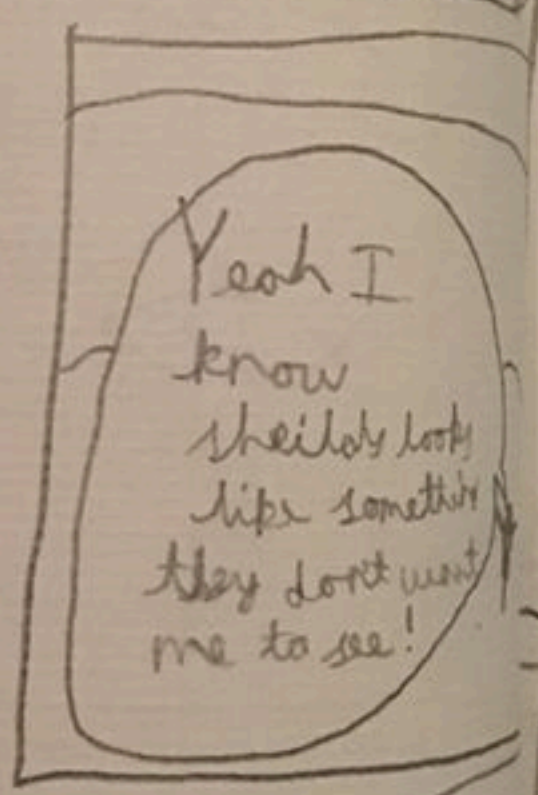 Yeah I
know
sheilds looks
like somethin
they don't want
me to see!